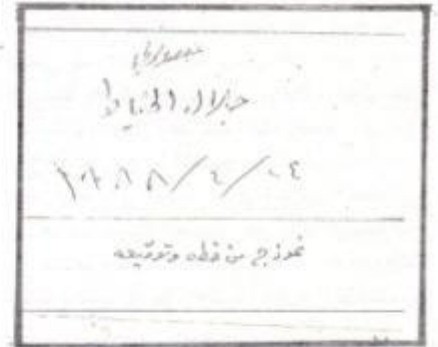 جلال الخياط
١٩٨٨/٤/٠٤
نموذج من خطه وتوقيعه